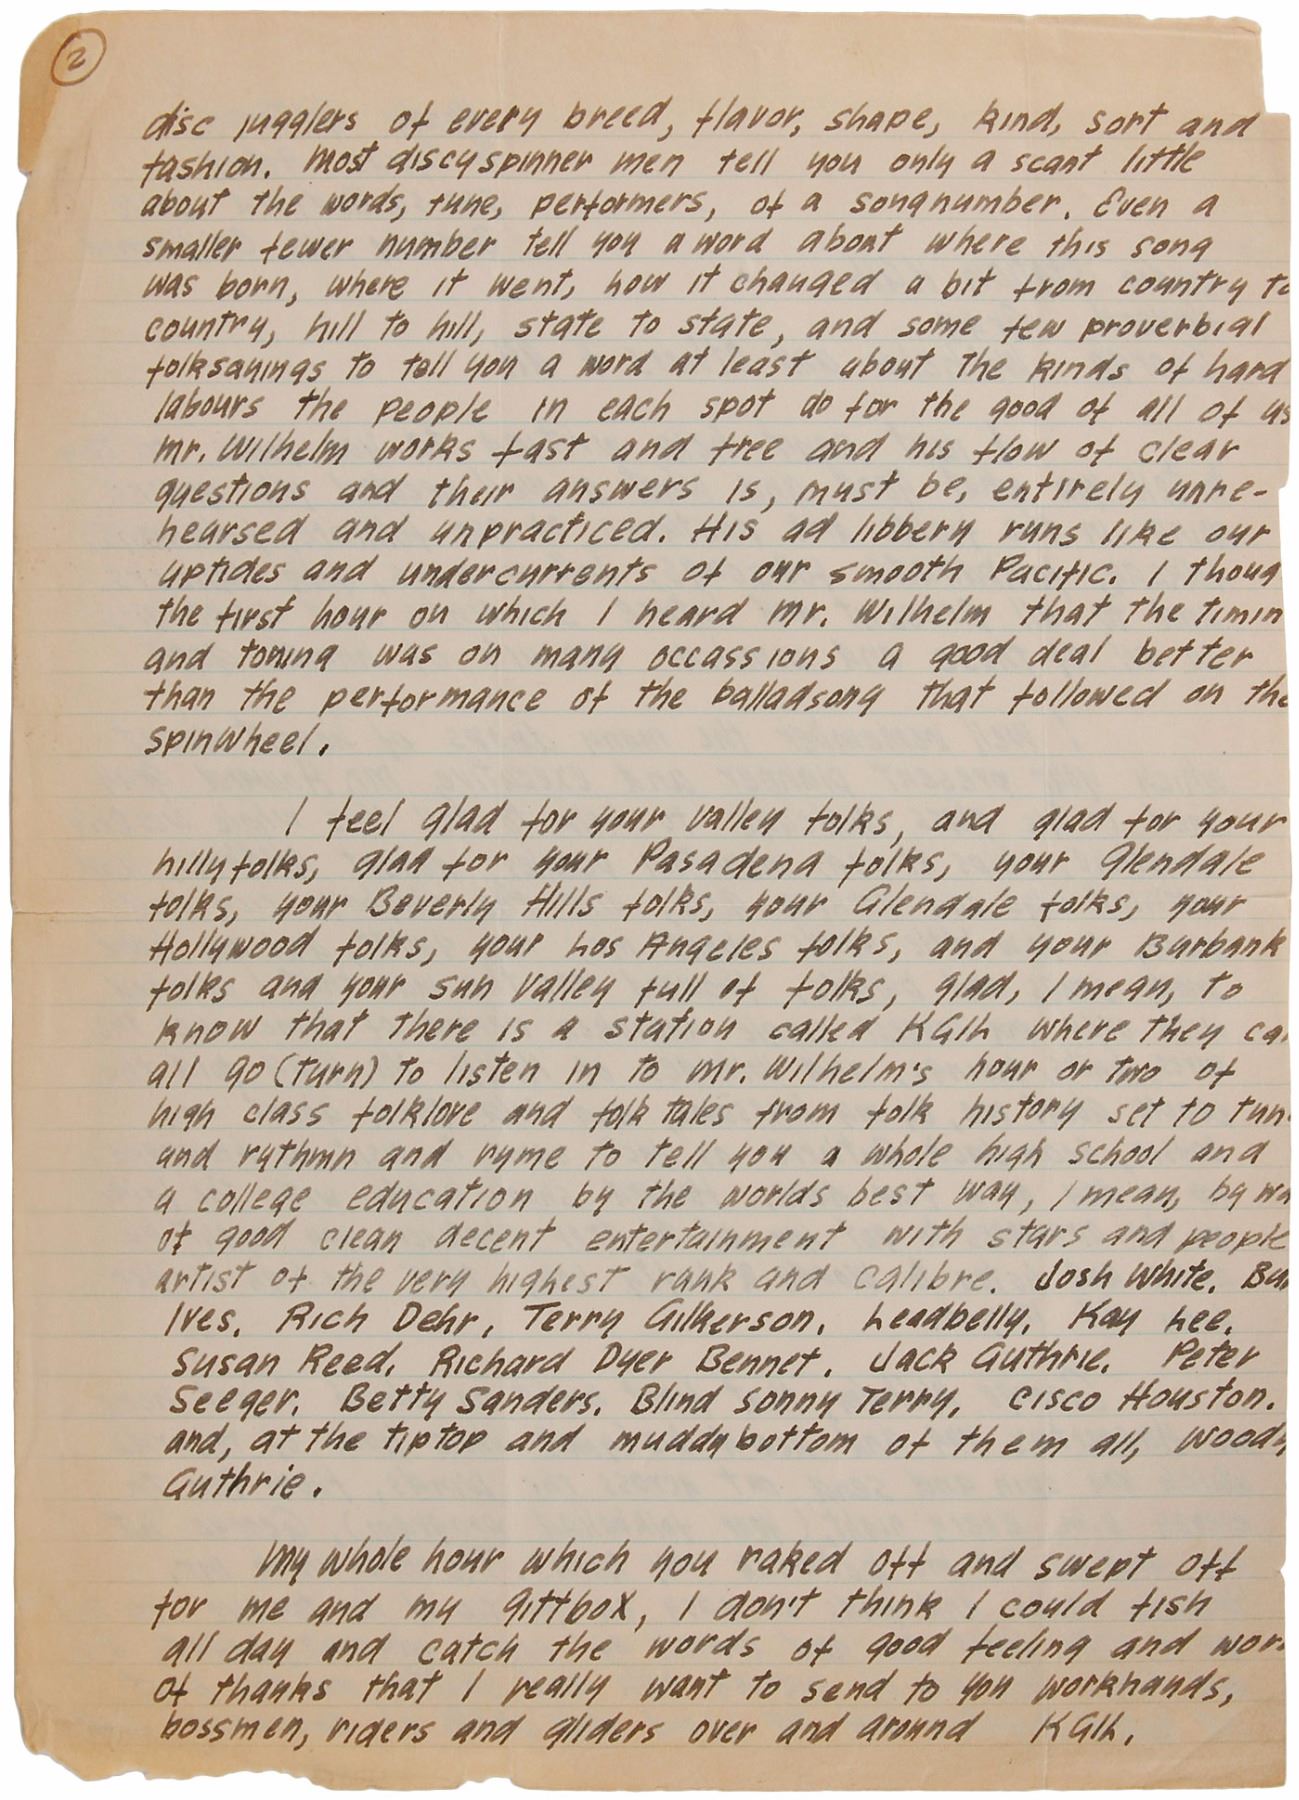 2
disc jugglers of every breed, flavor, shape, kind, sort and
fashion. Most discyspinner men tell you only a scant little
about the words, tune, performers, of a songnumber. Even a
smaller fewer number tell you a word about where this song
was born, where it went, how it changed a bit from country to
country, hill to hill, state to state, and some few proverbial
folksayings to tell you a word at least about the kinds of hard
labours the people in each spot do for the good of all of us
mr. Wilhelm works fast and free and his flow of clear
questions and their answers is, must be, entirely unre-
hearsed and unpracticed. His ad libbery runs like our
uptides and undercurrents of our smooth Pacific. I thoug
the first hour on which I heard mr. Wilhelm that the timin
and toning was on many occassions a good deal better
than the performance of the balladsong that followed on the
spinwheel.
I feel glad for your valley folks, and glad for your
hillyfolks, glad for your Pasadena folks, your Glendale
folks, your Beverly Hills folks, your Glendale folks, your
Hollywood folks, your Los Angeles folks, and your Burbank
folks and your sun valley full of folks, glad, I mean, to
know that there is a station called KGIL where they ca
all go (turn) to listen in to mr. Wilhelm's hour or two of
high class folklore and folk tales from folk history set to tun
and rythmn and ryme to tell you a whole high school and
a college education by the worlds best way, I mean, by wa
of good clean decent entertainment with stars and people
artist of the very highest rank and calibre. Josh White. Bu
Ives. Rich Dehr. Terry Gilkerson. Leadbelly. Kay Lee.
Susan Reed. Richard Dyer Bennet. Jack Guthrie. Peter
Seeger. Betty Sanders. Blind Sonny Terry. Cisco Houston.
and, at the tiptop and muddybottom of them all, Woody
Guthrie.
My whole hour which you raked off and swept off
for me and my gittbox, I don't think I could fish
all day and catch the words of good feeling and wor
of thanks that I really want to send to you workhands,
bossmen, riders and gliders over and around KGIL.